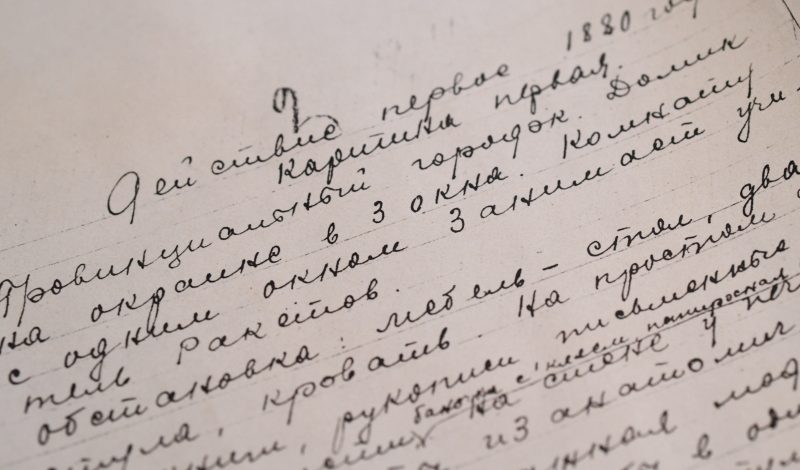 Действие первое 1880 год
Картина первая.
Провинциальный городок. Домик
на окраине в 3 окна. Комнату
с одним окном занимает учи-
тель Ракетов.
обстановка: мебель – стол, два
стула, кровать. На простом
рукописи письменные
банка с клеем папиросная
На стене у
из анатомич
в одн